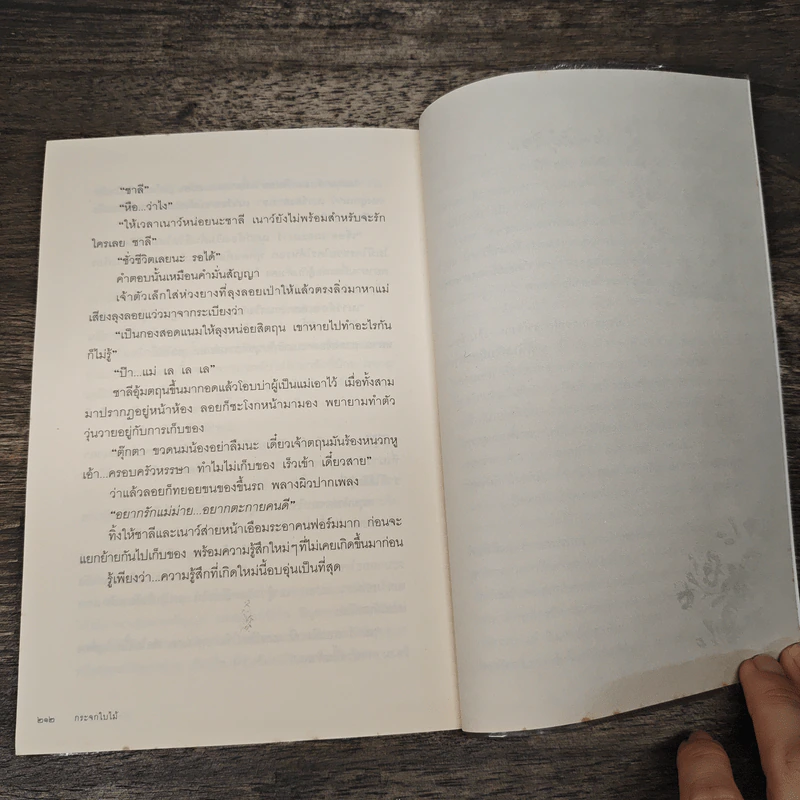 “ซาลี”
“หือ...ว่าไง”
“ให้เวลาเนาว์หน่อยนะซาลี เนาว์ยังไม่พร้อมสำหรับจะรัก
ใครเลย ซาลี”
“ชั่วชีวิตเลยนะ รอได้”
คำตอบนั้นเหมือนคำมั่นสัญญา
เจ้าตัวเล็กใส่ห่วงยางที่ลุงลอยเป่าให้แล้วตรงลิ่วมาหาแม่
เสียงลุงลอยแว่วมาจากระเบียงว่า
“เป็นกองสอดแนมให้ลุงหน่อยสิตฤน เขาหายไปทำอะไรกัน
ก็ไม่รู้”
“ป๊า...แม่ เล เล เล”
ซาลีอุ้มตฤนขึ้นมากอดแล้วโอบบ่าผู้เป็นแม่เอาไว้ เมื่อทั้งสาม
มาปรากฏอยู่หน้าห้อง ลอยก็ชะโงกหน้ามามอง พยายามทำตัว
วุ่นวายอยู่กับการเก็บของ
“ตุ๊กตา ขวดนมน้องอย่าลืมนะ เดี๋ยวเจ้าตฤนมันร้องหนวกหู
เอ้า...ครอบครัวหรรษา ทำไมไม่เก็บของ เร็วเข้า เดี๋ยวสาย”
ว่าแล้วลอยก็ทยอยขนของขึ้นรถ พลางผิวปากเพลง
“อยากรักแม่ม่าย...อยากตะกายคนดี”
ทิ้งให้ซาลีและเนาว์ส่ายหน้าเอือมระอาคนฟอร์มมาก ก่อนจะ
แยกย้ายกันไปเก็บของ พร้อมความรู้สึกใหม่ๆที่ไม่เคยเกิดขึ้นมาก่อน
รู้เพียงว่า...ความรู้สึกที่เกิดใหม่นี้อบอุ่นเป็นที่สุด
๒๑๒ กระจกใบไม้